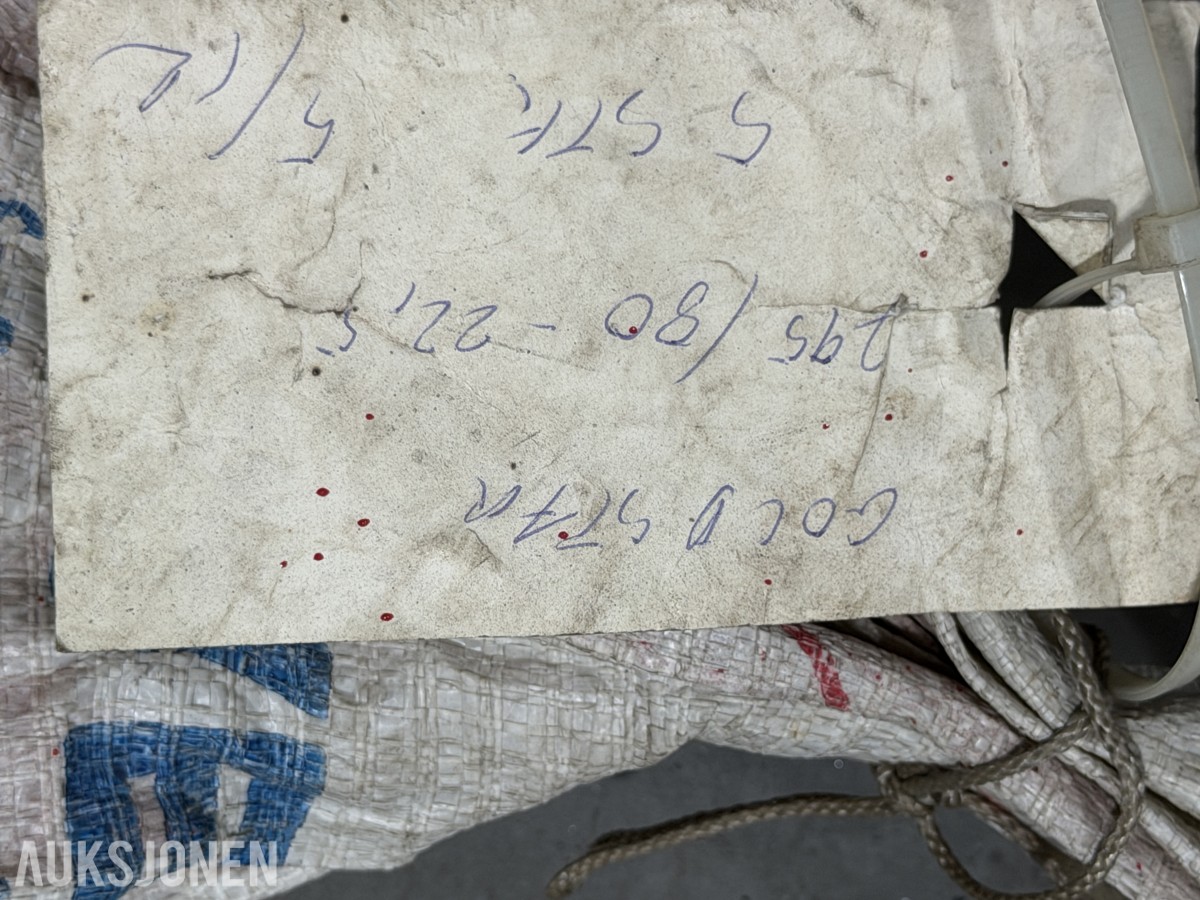 GOLD STAR
295/80 - 22,5
5 STK, 5/12
AUKSJONEN